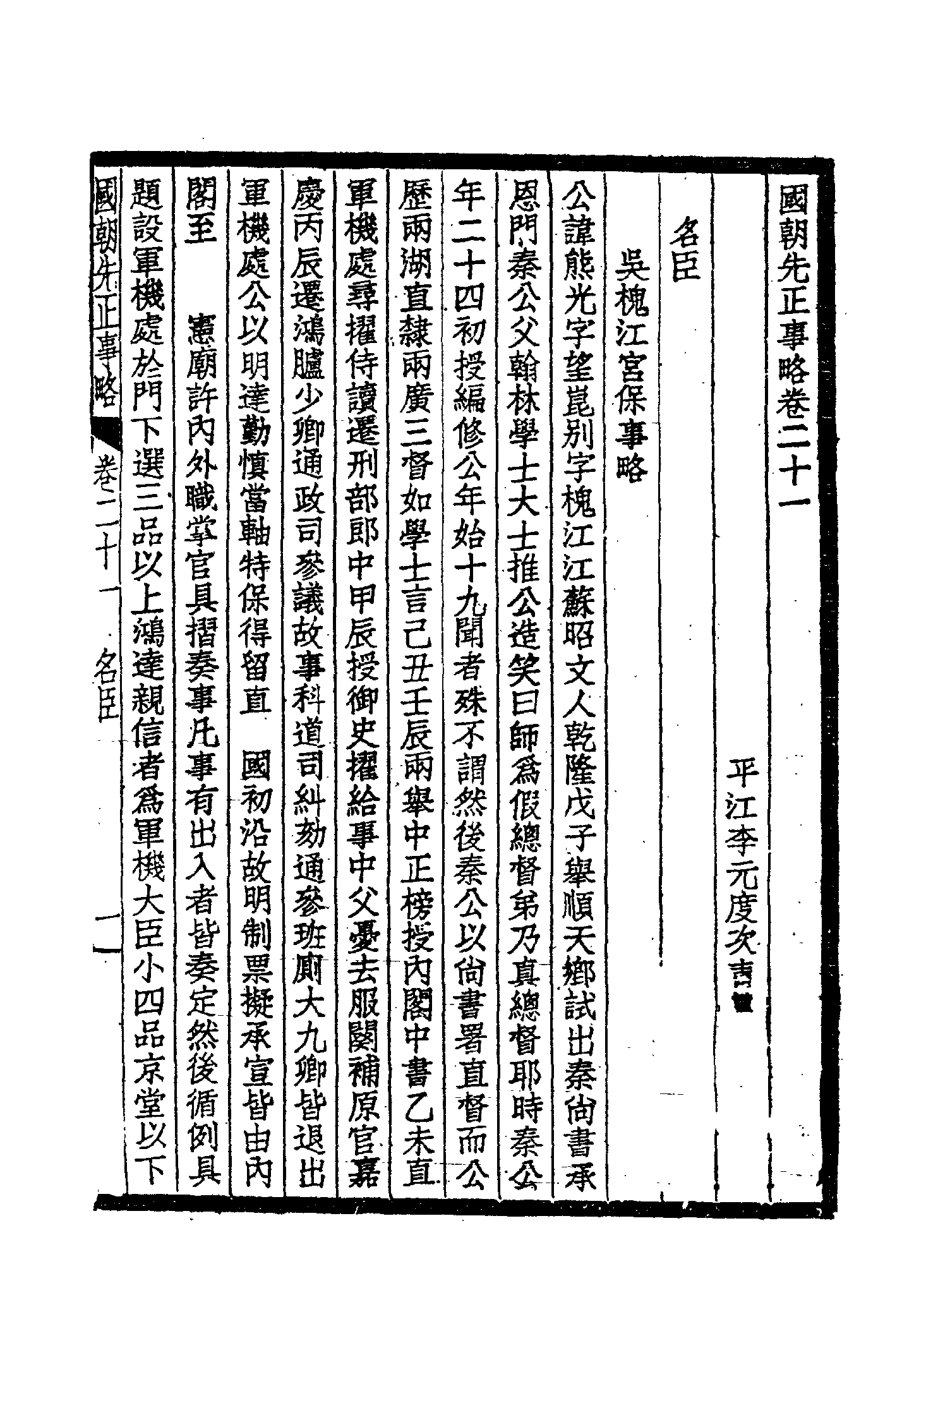 國朝先正事略卷二十一
平江李元度次青
名臣
吳槐江宮保事略
公諱熊光字望崑别字槐江江蘇昭文人乾隆戊子舉順天鄉試出秦尙書承
恩門秦公父翰林學士大士推公造笑曰師爲假總督弟乃真總督耶時秦公
年二十四初授編修公年始十九聞者殊不謂然後秦公以尙書署直督而公
歷兩湖直隸兩廣三督如學士言己丑壬辰兩舉中正榜授內閣中書乙未直
軍機處尋擢侍讀遷刑部郎中甲辰授御史擢給事中父憂去服闋補原官嘉
慶丙辰遷鴻臚少卿通政司參議故事科道司糾劾通參班厠大九卿皆退出
軍機處公以明達勤慎當軸特保得留直　國初沿故明制票擬承宣皆由內
閣至　　憲廟許內外職掌官具摺奏事凡事有出入者皆奏定然後循例具
題設軍機處於門下選三品以上鴻達親信者爲軍機大臣小四品京堂以下
國朝先正事略　卷二十一　名臣　一